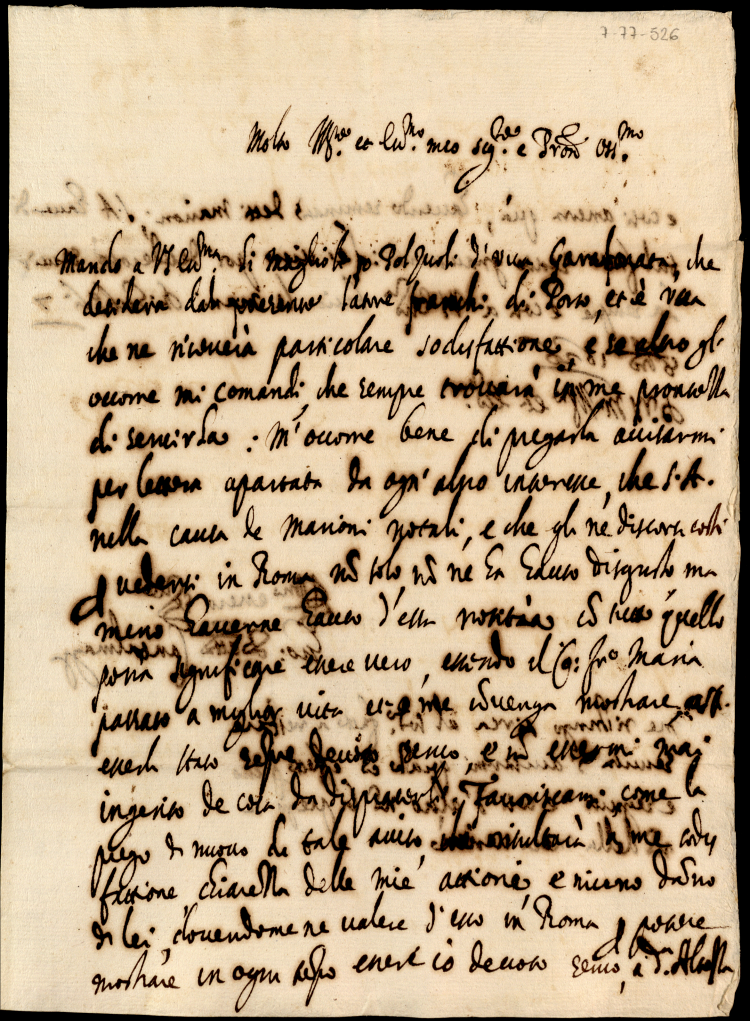 7-77-526
Molto Ill.re et Ecc.mo mio sig.re e Pron Oss.mo
Mando a VS Ecc.ma di di una che
desidera dal presente di Porto, et è
che ne riceverà particolare sodisfattione, e se altro gli
occorre mi comandi, che sempre trovarà in me prontezza
di servirla: M'occorre bene di pregarla avisarmi
per lettera apartata da ogn'altro interesse, che S.A.
nella causa de Marioni notali, e che gli ne discorse costì
vedersi in Roma nō solo nō ne ha hauto disgusto ma
meno haverne hauto d'essa notitia cō tutto quello
possa significare essere vero, essendo il Frō Maria
passato a miglior vita et a me cōvenga mostrare
esserli stato sempre devoto servo, e nō essermi mai
ingerito de cosa da dispiacerli; Favoriscami come la
prego di nuovo di tale aviso risultarà a me sodis
fattione chiarezza delle mie attioni e
di lei, dovendomene valere d'esso in Roma potere
mostrare in ogni tempo esserli io devoto servo, a S. Altezza